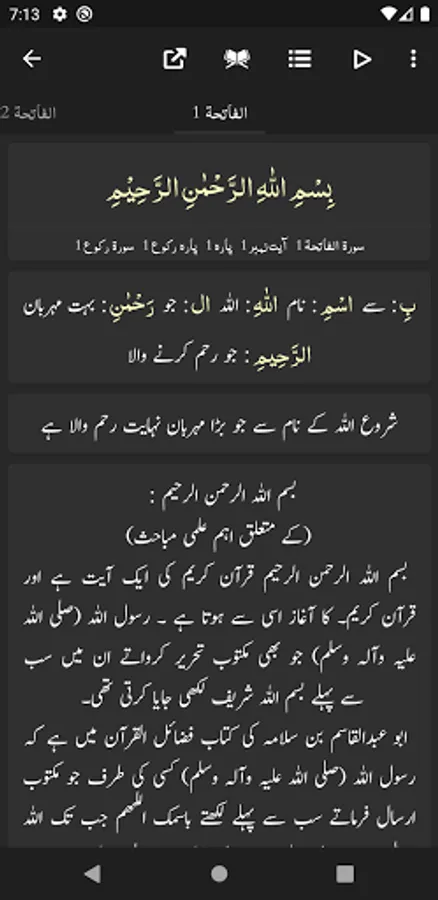 7:13
الفاتحة 1
الفاتحة 2
بِسْمِ اللّٰهِ الرَّحْمٰنِ الرَّحِيْمِ
سورة الفاتحة 1 آیت نمبر 1 پارہ 1 پارہ رکوع 1 سورة رکوع 1
بِ: سے اسْمِ: نام اللّٰهِ: اللہ ال: جو رَحْمٰنِ: بہت مہربان
الرَّحِيمِ: جو رحم کرنے والا
شروع اللہ کے نام سے جو بڑا مہربان نہایت رحم والا ہے
بسم اللہ الرحمن الرحیم :
(کے متعلق اہم علمی مباحث)
بسم اللہ الرحمن الرحیم قرآن کریم کی ایک آیت ہے اور
قرآن کریم۔ کا آغاز اسی سے ہوتا ہے ۔ رسول اللہ (صلی اللہ
علیہ وآلہ وسلم) جو بھی مکتوب تحریر کرواتے ان میں سب
سے پہلے بسم اللہ شریف لکھی جایا کرتی تھی۔
ابو عبدالقاسم بن سلامہ کی کتاب فضائل القرآن میں ہے کہ
رسول اللہ (صلی اللہ علیہ وآلہ وسلم) کسی کی طرف جو مکتوب
ارسال فرماتے سب سے پہلے لکھتے باسمک اللھم جب تک اللہ